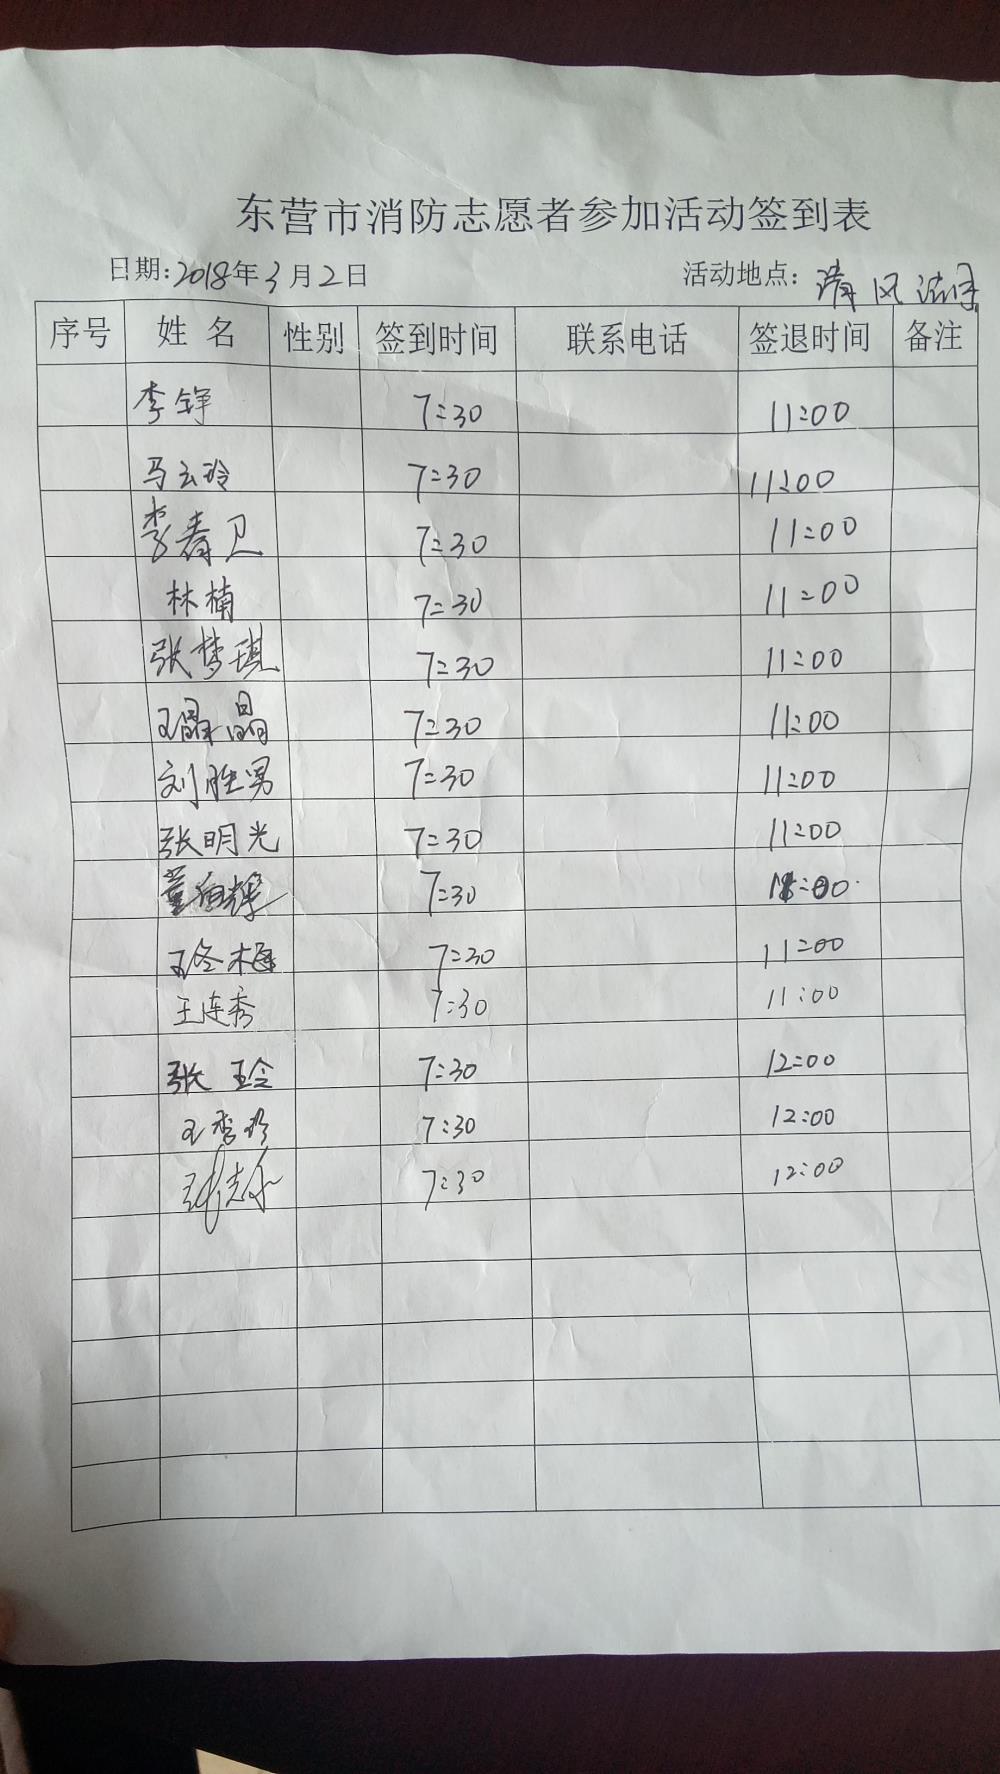 东营市消防志愿者参加活动签到表
日期:2018年3月2日 活动地点:清风
序号 姓名 性别 签到时间 联系电话 签退时间 备注
李铮 7:30 11:00
马云玲 7:30 11:00
李春卫 7:30 11:00
林楠 7:30 11:00
张梦琪 7:30 11:00
王晶晶 7:30 11:00
刘胜男 7:30 11:00
张明光 7:30 11:00
董 辉 7:30 11:00
王冬梅 7:30 11:00
王连秀 7:30 11:00
张玲 7:30 12:00
王秀珍 7:30 12:00
7:30 12:00